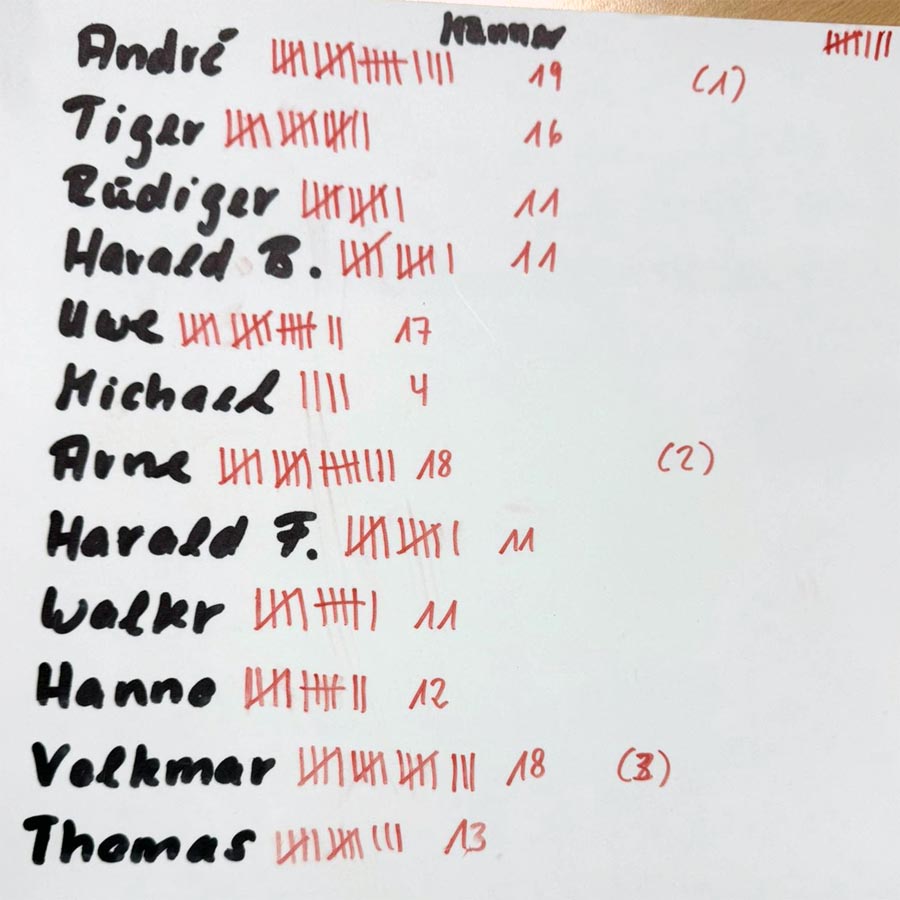 Männer
André 19 (1)
Tiger 16
Rüdiger 11
Harald B. 11
Uwe 17
Michael 4
Arne 18 (2)
Harald F. 11
Walter 11
Hanno 12
Volkmar 18 (3)
Thomas 13